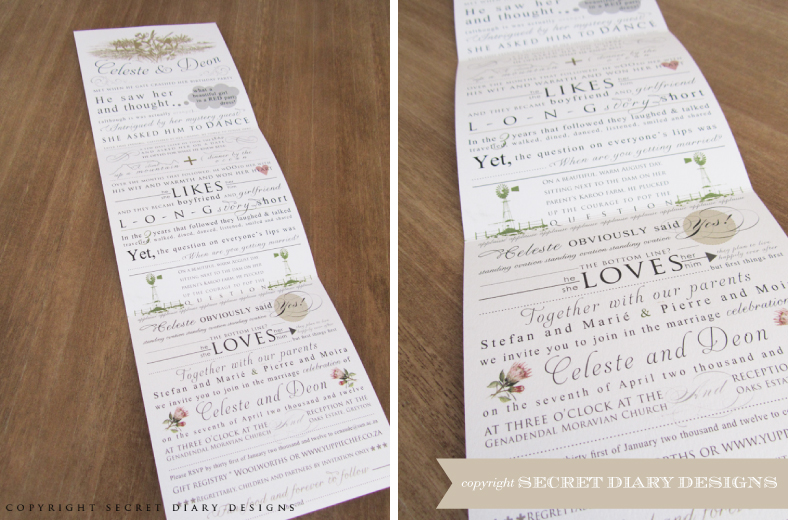 Celeste & Deon
He saw her
and thought...
what a
beautiful girl
in a RED party
dress!
(although it was actually
Intrigued by her mystery guest
SHE ASKED HIM TO DANCE
+
HIS WIT AND WARMTH AND WON HER
he LIKES her
she him
AND THEY BECAME boyfriend and girlfriend
L - O - N - G story short
In the 3 years that followed they laughed & talked
travelled, walked, dined, danced, listened, smiled and shared
Yet, the question on everyone's lips was
When are you getting married?
ON A BEAUTIFUL, WARM AUGUST DAY
SITTING NEXT TO THE DAM ON HER
PARENT'S KAROO FARM, HE PUCKED
UP THE COURAGE TO POP THE
QUESTION
Celeste OBVIOUSLY said Yes!
standing ovation standing ovation standing ovation
THE BOTTOM LINE?
he LOVES her
she him
they plan to live
happily ever after
...but first things first
Together with our parents
Stefan and Marié & Pierre and Moira
we invite you to join in the marriage celebration of
Celeste and Deon
on the seventh of April two thousand and twelve
AT THREE O'CLOCK AT THE
GENADENDAL MORAVIAN CHURCH
And
RECEPTION AT THE
OAKS ESTATE, GREYTON
Please RSVP by thirty first of January two thousand and twelve to
GIFT REGISTRY * WOOLWORTHS OR WWW.YUPPIECHEF.CO.ZA
***REGRETTABLY, CHILDREN AND PARTNERS BY INVITATION ONLY***
food and forever to follow
COPYRIGHT SECRET DIARY DESIGNS
he saw her
and thought...
in a RED party
dress!
(although it was actually
Intrigued by her mystery guest
SHE ASKED HIM TO DANCE
+
HIS WIT AND WARMTH AND WON HER
he LIKES her
she him
AND THEY BECAME boyfriend and girlfriend
L - O - N - G story short
In the 3 years that followed they laughed & talked
travelled, walked, dined, danced, listened, smiled and shared
Yet, the question on everyone's lips was
When are you getting married?
ON A BEAUTIFUL, WARM AUGUST DAY
SITTING NEXT TO THE DAM ON HER
PARENT'S KAROO FARM, HE PUCKED
UP THE COURAGE TO POP THE
QUESTION
Celeste OBVIOUSLY said Yes!
standing ovation standing ovation standing ovation
THE BOTTOM LINE?
he LOVES her
she him
they plan to live
happily ever after
...but first things first
Together with our parents
Stefan and Marié & Pierre and Moi
we invite you to join in the marriage celebration
Celeste and Deon
on the seventh of April two thousand and
AT THREE O'CLOCK AT THE
GENADENDAL MORAVIAN CHURCH
And
RECEPTION
OAKS ESTAT
thirty first of January two thousand and twelve to
WOOLWORTHS OR WWW.YUPPI
copyright SECRET DIARY DESIGNS
***REGRE